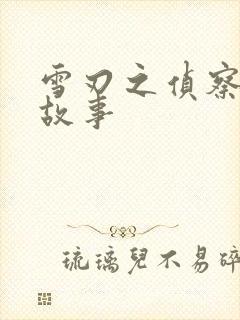 雪刃之偵察
故事
琉璃兒不易碎